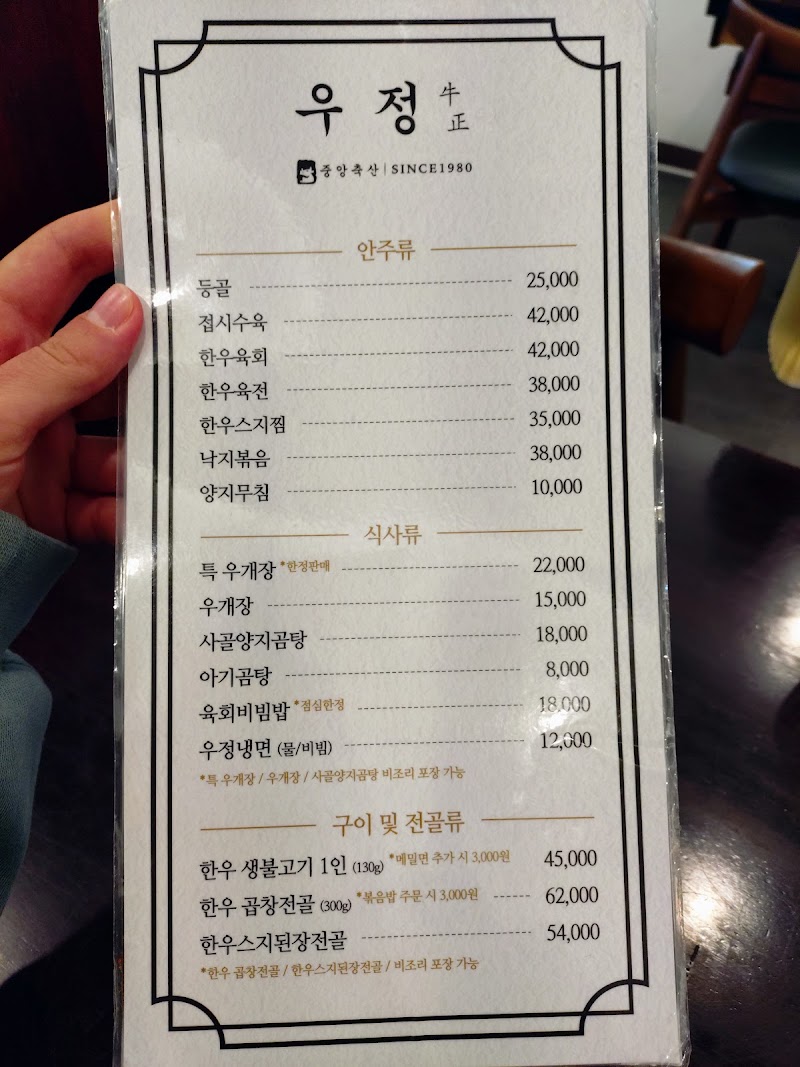 우정 牛正
중앙축산 | SINCE1980
안주류
등골 25,000
접시수육 42,000
한우육회 42,000
한우육전 38,000
한우스지찜 35,000
낙지볶음 38,000
양지무침 10,000
식사류
특 우개장 *한정판매 22,000
우개장 15,000
사골양지곰탕 18,000
아기곰탕 8,000
육회비빔밥 *점심한정 18,000
우정냉면 (물/비빔) 12,000
*특 우개장 / 우개장 / 사골양지곰탕 비조리 포장 가능
구이 및 전골류
한우 생불고기 1인 (130g) *메밀면 추가 시 3,000원 45,000
한우 곱창전골 (300g) *볶음밥 주문 시 3,000원 62,000
한우스지된장전골 54,000
*한우 곱창전골 / 한우스지된장전골 / 비조리 포장 가능